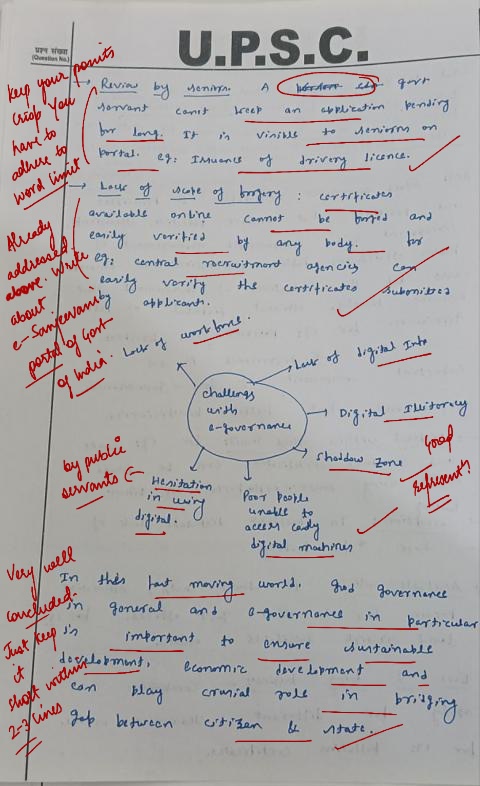 प्रश्न संख्या
(Question No.)
U.P.S.C.
Keep your points
crisp You
have to
adhere to
word limit
→ Review by seniors. A govt
servant can't keep an application pending
for long. It is visible to seniors on
portal. eg: Issuance of drivery licence.
→ Lack of scope of forgery : certificates
available online cannot be forged and
easily verified by any body. for
eg: central recruitment agencies can
easily verify the certificates submitted
by applicants.
Already
addressed
above. Write
about
e-Sanjeevani
portal of Govt
of India.
Lack of workforce.
Lack of digital Infra
challenges
with
e-governance
Digital Illiteracy
Shaddow Zone
Good
Represent?
by public
servants
Hesitation
in using
digital.
Poor people
unable to
access easily
digital machines
Very well
concluded.
Just keep
it
short within
2-3 lines
In this fast moving world, good governance
in general and e-governance in particular
is important to ensure sustainable
development, economic development and
can play crucial role in bridging
gap between citizen & state.